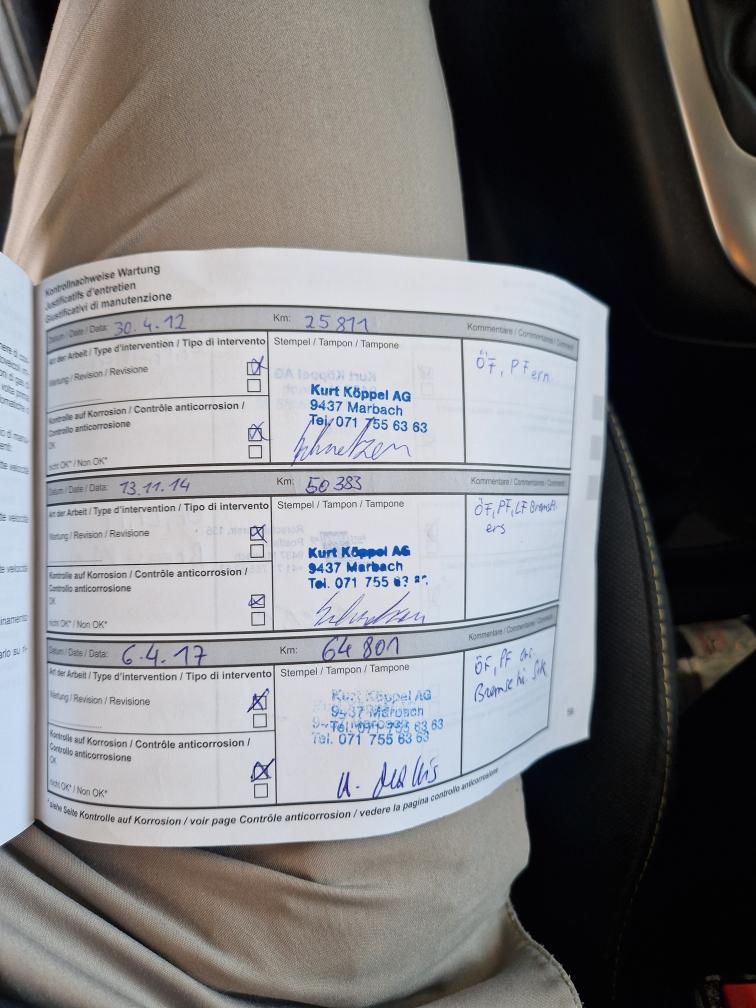 Kontrollnachweise Wartung
Justificatifs d'entretien
Giustificativi di manutenzione
Datum / Date / Data: 30.4.12 Km: 25 811 Kommentare / Commentaires / Commenti
Art der Arbeit / Type d'intervention / Tipo di intervento
Stempel / Tampon / Tampone
ÖF, PF ern.
Wartung / Revision / Revisione
Kurt Köppel AG
9437 Marbach
Tel. 071 755 63 63
Kontrolle auf Korrosion / Contrôle anticorrosion /
Controllo anticorrosione
OK
nicht OK* / Non OK*
Datum / Date / Data: 13.11.14 Km: 50 383 Kommentare / Commentaires / Commenti
Art der Arbeit / Type d'intervention / Tipo di intervento
Stempel / Tampon / Tampone
ÖF, PF, LF
ers
Wartung / Revision / Revisione
Kurt Köppel AG
9437 Marbach
Tel. 071 755
Kontrolle auf Korrosion / Contrôle anticorrosion /
Controllo anticorrosione
OK
nicht OK* / Non OK*
Datum / Date / Data: 6.4.17 Km: 64 801 Kommentare / Commentaires / Commenti
Art der Arbeit / Type d'intervention / Tipo di intervento
Stempel / Tampon / Tampone
ÖF, PF
Bremse hi.
Wartung / Revision / Revisione
Kurt Köppel AG
9437 Marbach
Tel. 071 755 63 63
Tel. 071 755 63 63
Kontrolle auf Korrosion / Contrôle anticorrosion /
Controllo anticorrosione
OK
nicht OK* / Non OK*
* siehe Seite Kontrolle auf Korrosion / voir page Contrôle anticorrosion / vedere la pagina controllo anticorrosione